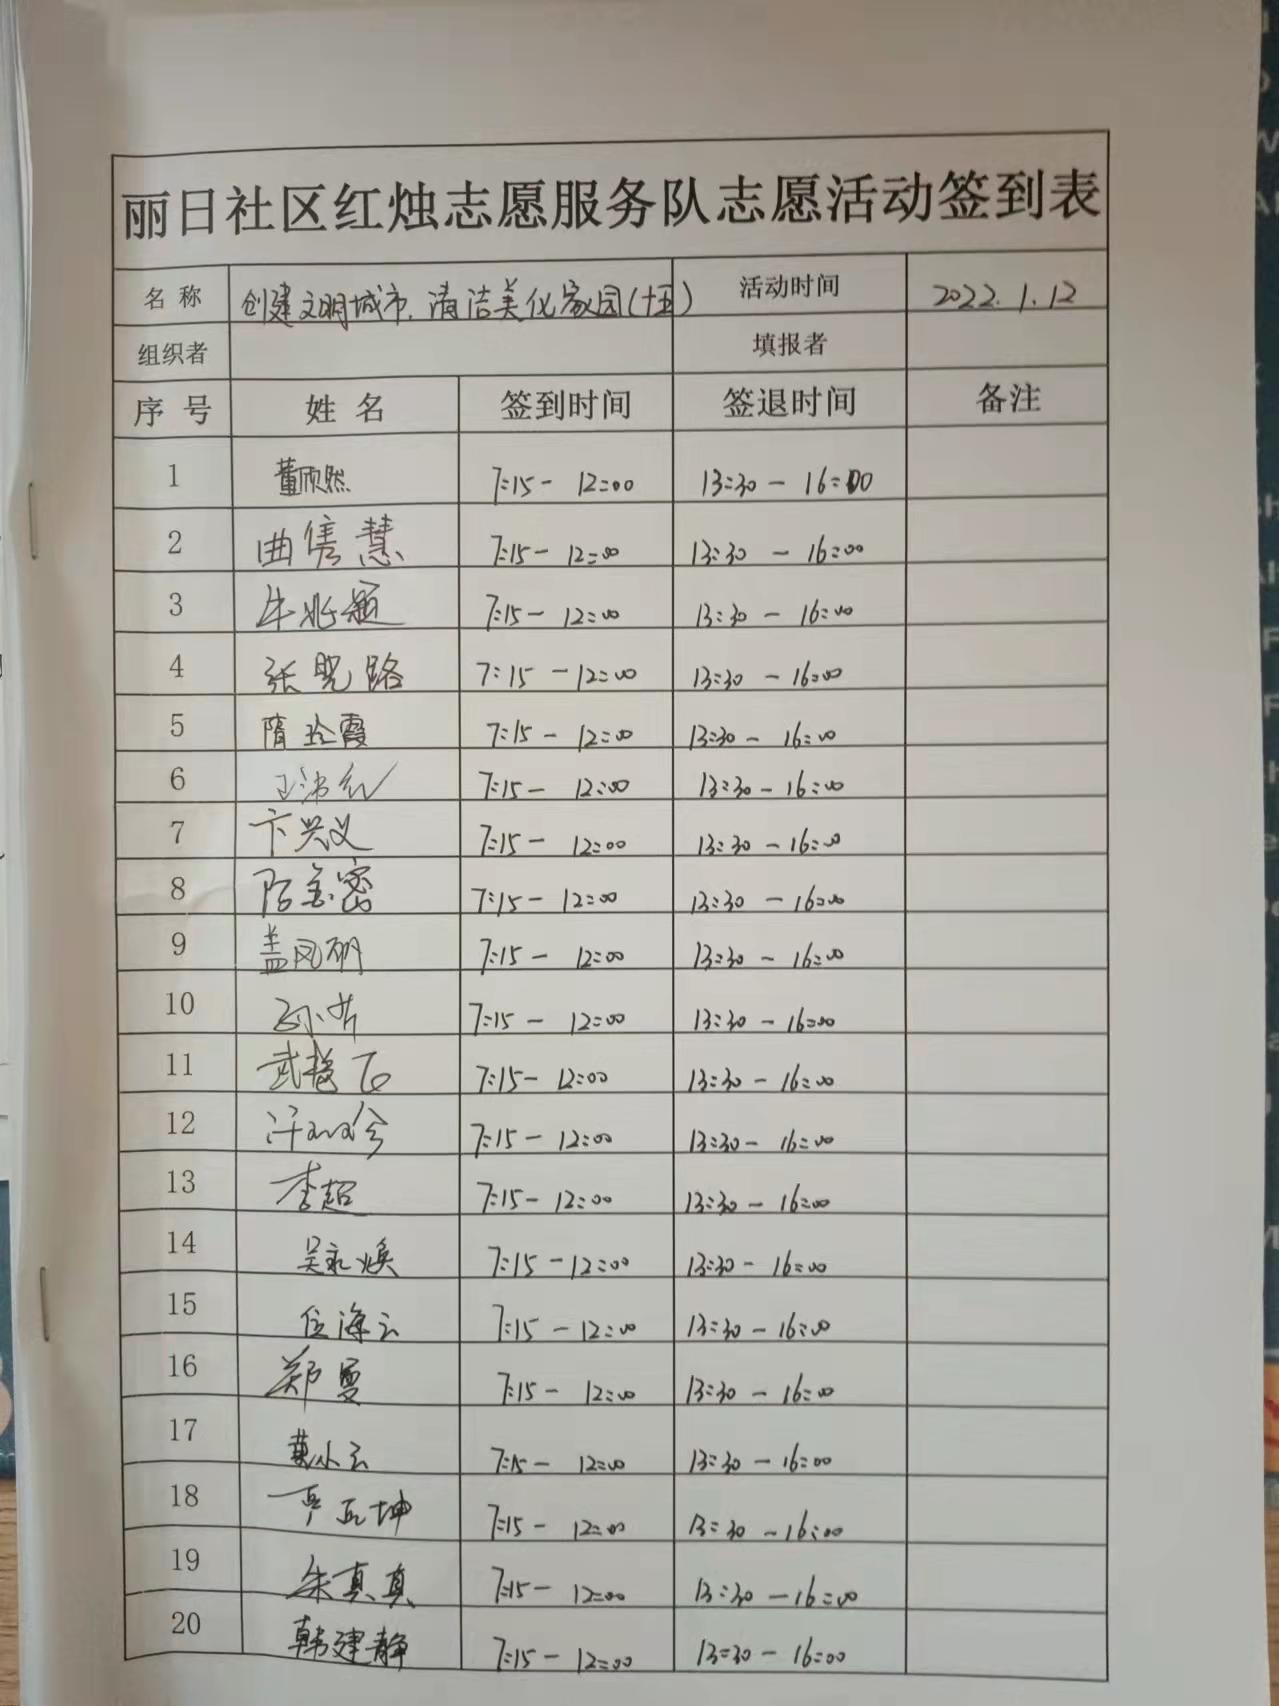 丽日社区红烛志愿服务队志愿活动签到表
名 称 创建文明城市.清洁美化家园(十五) 活动时间 2022.1.12
组织者 填报者
序 号 姓 名 签到时间 签退时间 备注
1 董顾然 7:15- 12:00 13:30 - 16:00
2 曲隽慧 7:15- 12:00 13:30 - 16:00
3 牛兆题 7:15- 12:00 13:30 - 16:00
4 张晓路 7:15 -12:00 13:30 - 16:00
5 隋玲霞 7:15- 12:00 13:30- 16:00
6 7:15- 12:00 13:30-16:00
7 卞兴义 7:15- 12:00 13:30-16:00
8 7:15- 12:00 13:30 -16:00
9 盖凤明 7:15- 12:00 13:30 - 16:00
10 7:15- 12:00 13:30 -16:00
11 7:15- 12:00 13:30- 16:00
12 7:15- 12:00 13:30- 16:00
13 李超 7:15-12:00 13:30- 16:00
14 吴永焕 7:15-12:00 13:30- 16:00
15 位海云 7:15 -12:00 13:30-16:00
16 郑曼 7:15- 12:00 13:30- 16:00
17 莫小云 7:15- 12:00 13:30 -16:00
18 7:15- 12:00 13:30 -16:00
19 朱真真 7:15- 12:00 13:30 -16:00
20 韩建静 7:15- 12:00 13:30- 16:00